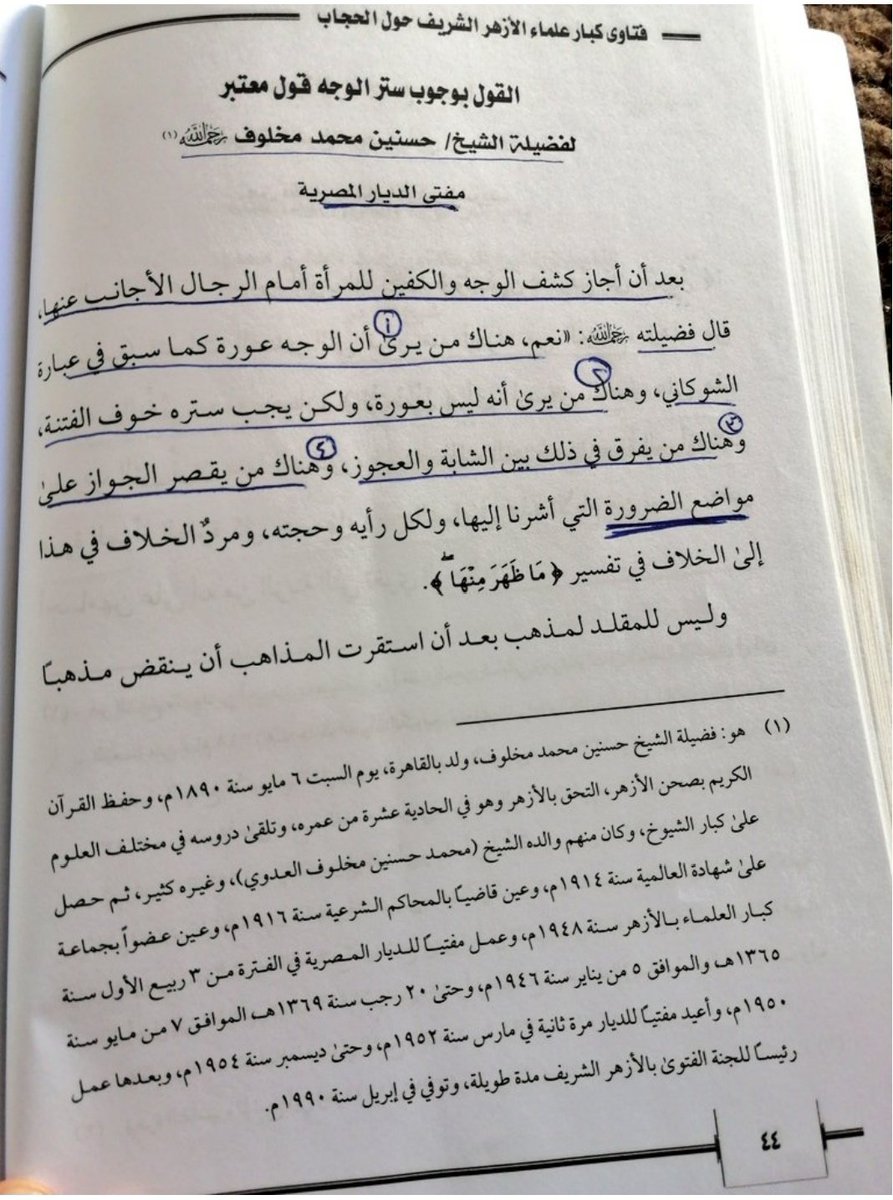 فتاوى كبار علماء الأزهر الشريف حول الحجاب
القول بوجوب ستر الوجه قول معتبر
لفضيلة الشيخ/ حسنين محمد مخلوف رحمه الله (١)
مفتى الديار المصرية
بعد أن أجاز كشف الوجه والكفين للمرأة أمام الرجال الأجانب عنها،
قال فضيلته رحمه الله: «نعم، هناك من يرىٰ أن الوجه عورة كما سبق في عبارة
١
الشوكاني، وهناك من يرىٰ أنه ليس بعورة، ولكن يجب ستره خوف الفتنة،
٢
وهناك من يفرق في ذلك بين الشابة والعجوز، وهناك من يقصر الجواز علىٰ
٣
٤
مواضع الضرورة التي أشرنا إليها، ولكل رأيه وحجته، ومردُّ الخلاف في هذا
إلىٰ الخلاف في تفسير ﴿مَا ظَهَرَ مِنْهَا ۖ﴾.
وليس للمقلد لمذهب بعد أن استقرت المذاهب أن ينقض مذهبًا
(١) هو: فضيلة الشيخ حسنين محمد مخلوف، ولد بالقاهرة، يوم السبت ٦ مايو سنة ١٨٩٠م، وحفظ القرآن
الكريم بصحن الأزهر، التحق بالأزهر وهو في الحادية عشرة من عمره، وتلقىٰ دروسه في مختلف العلوم
علىٰ كبار الشيوخ، وكان منهم والده الشيخ (محمد حسنين مخلوف العدوي)، وغيره كثير، ثم حصل
علىٰ شهادة العالمية سنة ١٩١٤م، وعين قاضيًا بالمحاكم الشرعية سنة ١٩١٦م، وعين عضواً بجماعة
كبار العلماء بالأزهر سنة ١٩٤٨م، وعمل مفتيًا للديار المصرية في الفترة من ٣ ربيع الأول سنة
١٣٦٥هـ، والموافق ٥ من يناير سنة ١٩٤٦م، وحتىٰ ٢٠ رجب سنة ١٣٦٩هـ، الموافق ٧ من مايو سنة
١٩٥٠م، وأعيد مفتيًا للديار مرة ثانية في مارس سنة ١٩٥٢م، وحتىٰ ديسمبر سنة ١٩٥٤م، وبعدها عمل
رئيسًا للجنة الفتوىٰ بالأزهر الشريف مدة طويلة، وتوفي في إبريل سنة ١٩٩٠م.
٤٤